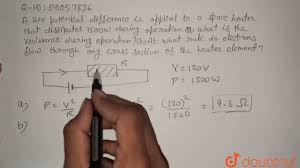 Q-ID:519057836
A 120V potential difference is applied to a space heater
that dissipates 1500W during operation. a) What is the
resistance during operation? b) At what rate do electrons
flow through any cross section of the heater element?
R
V = 120V
P = 1500W
a) P = V²/R
= (120)²/1500 = 9.6 Ω
b)
doubtnut